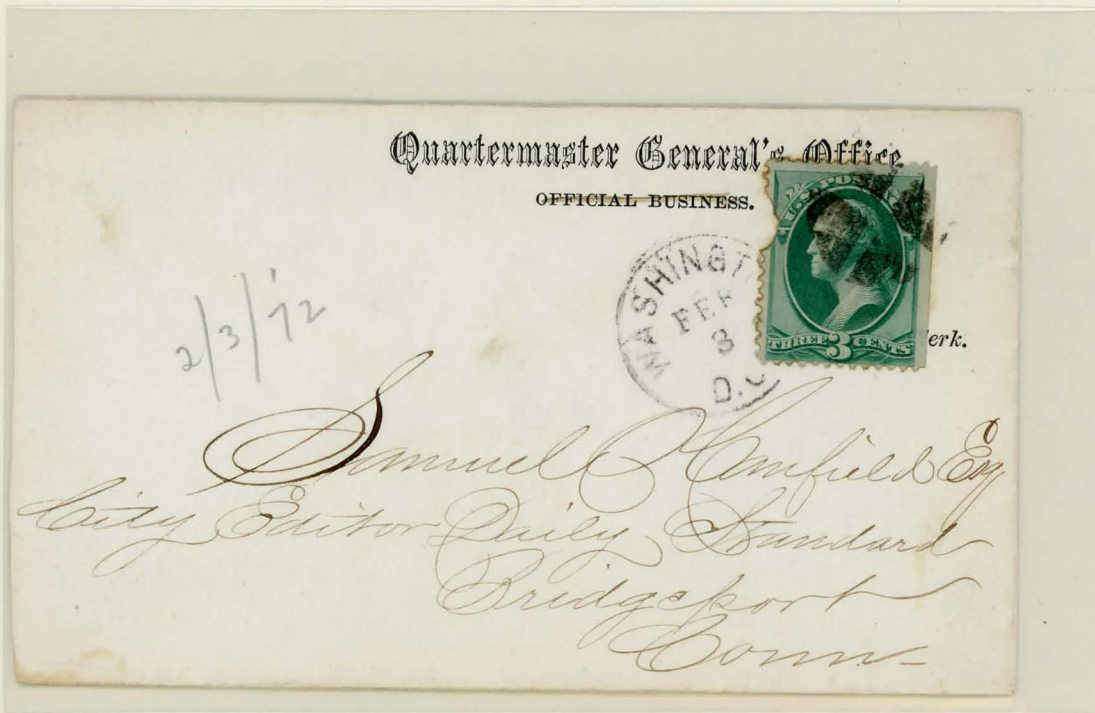 Quartermaster General's Office
OFFICIAL BUSINESS.
U.S. POSTAGE
WASHINGT
FEB
3
D.C
THREE 3 CENTS
erk.
2/3/'72
Samuel Hanfield Esq
City Editor Daily Standard
Bridgeport
Conn-